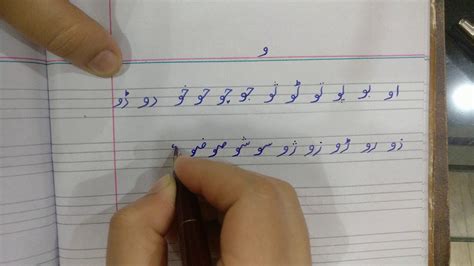 و
او بو پو تو ٹو ثو جو چو حو خو دو ڈو
ذو رو ڑو زو ژو سو شو صو ضو